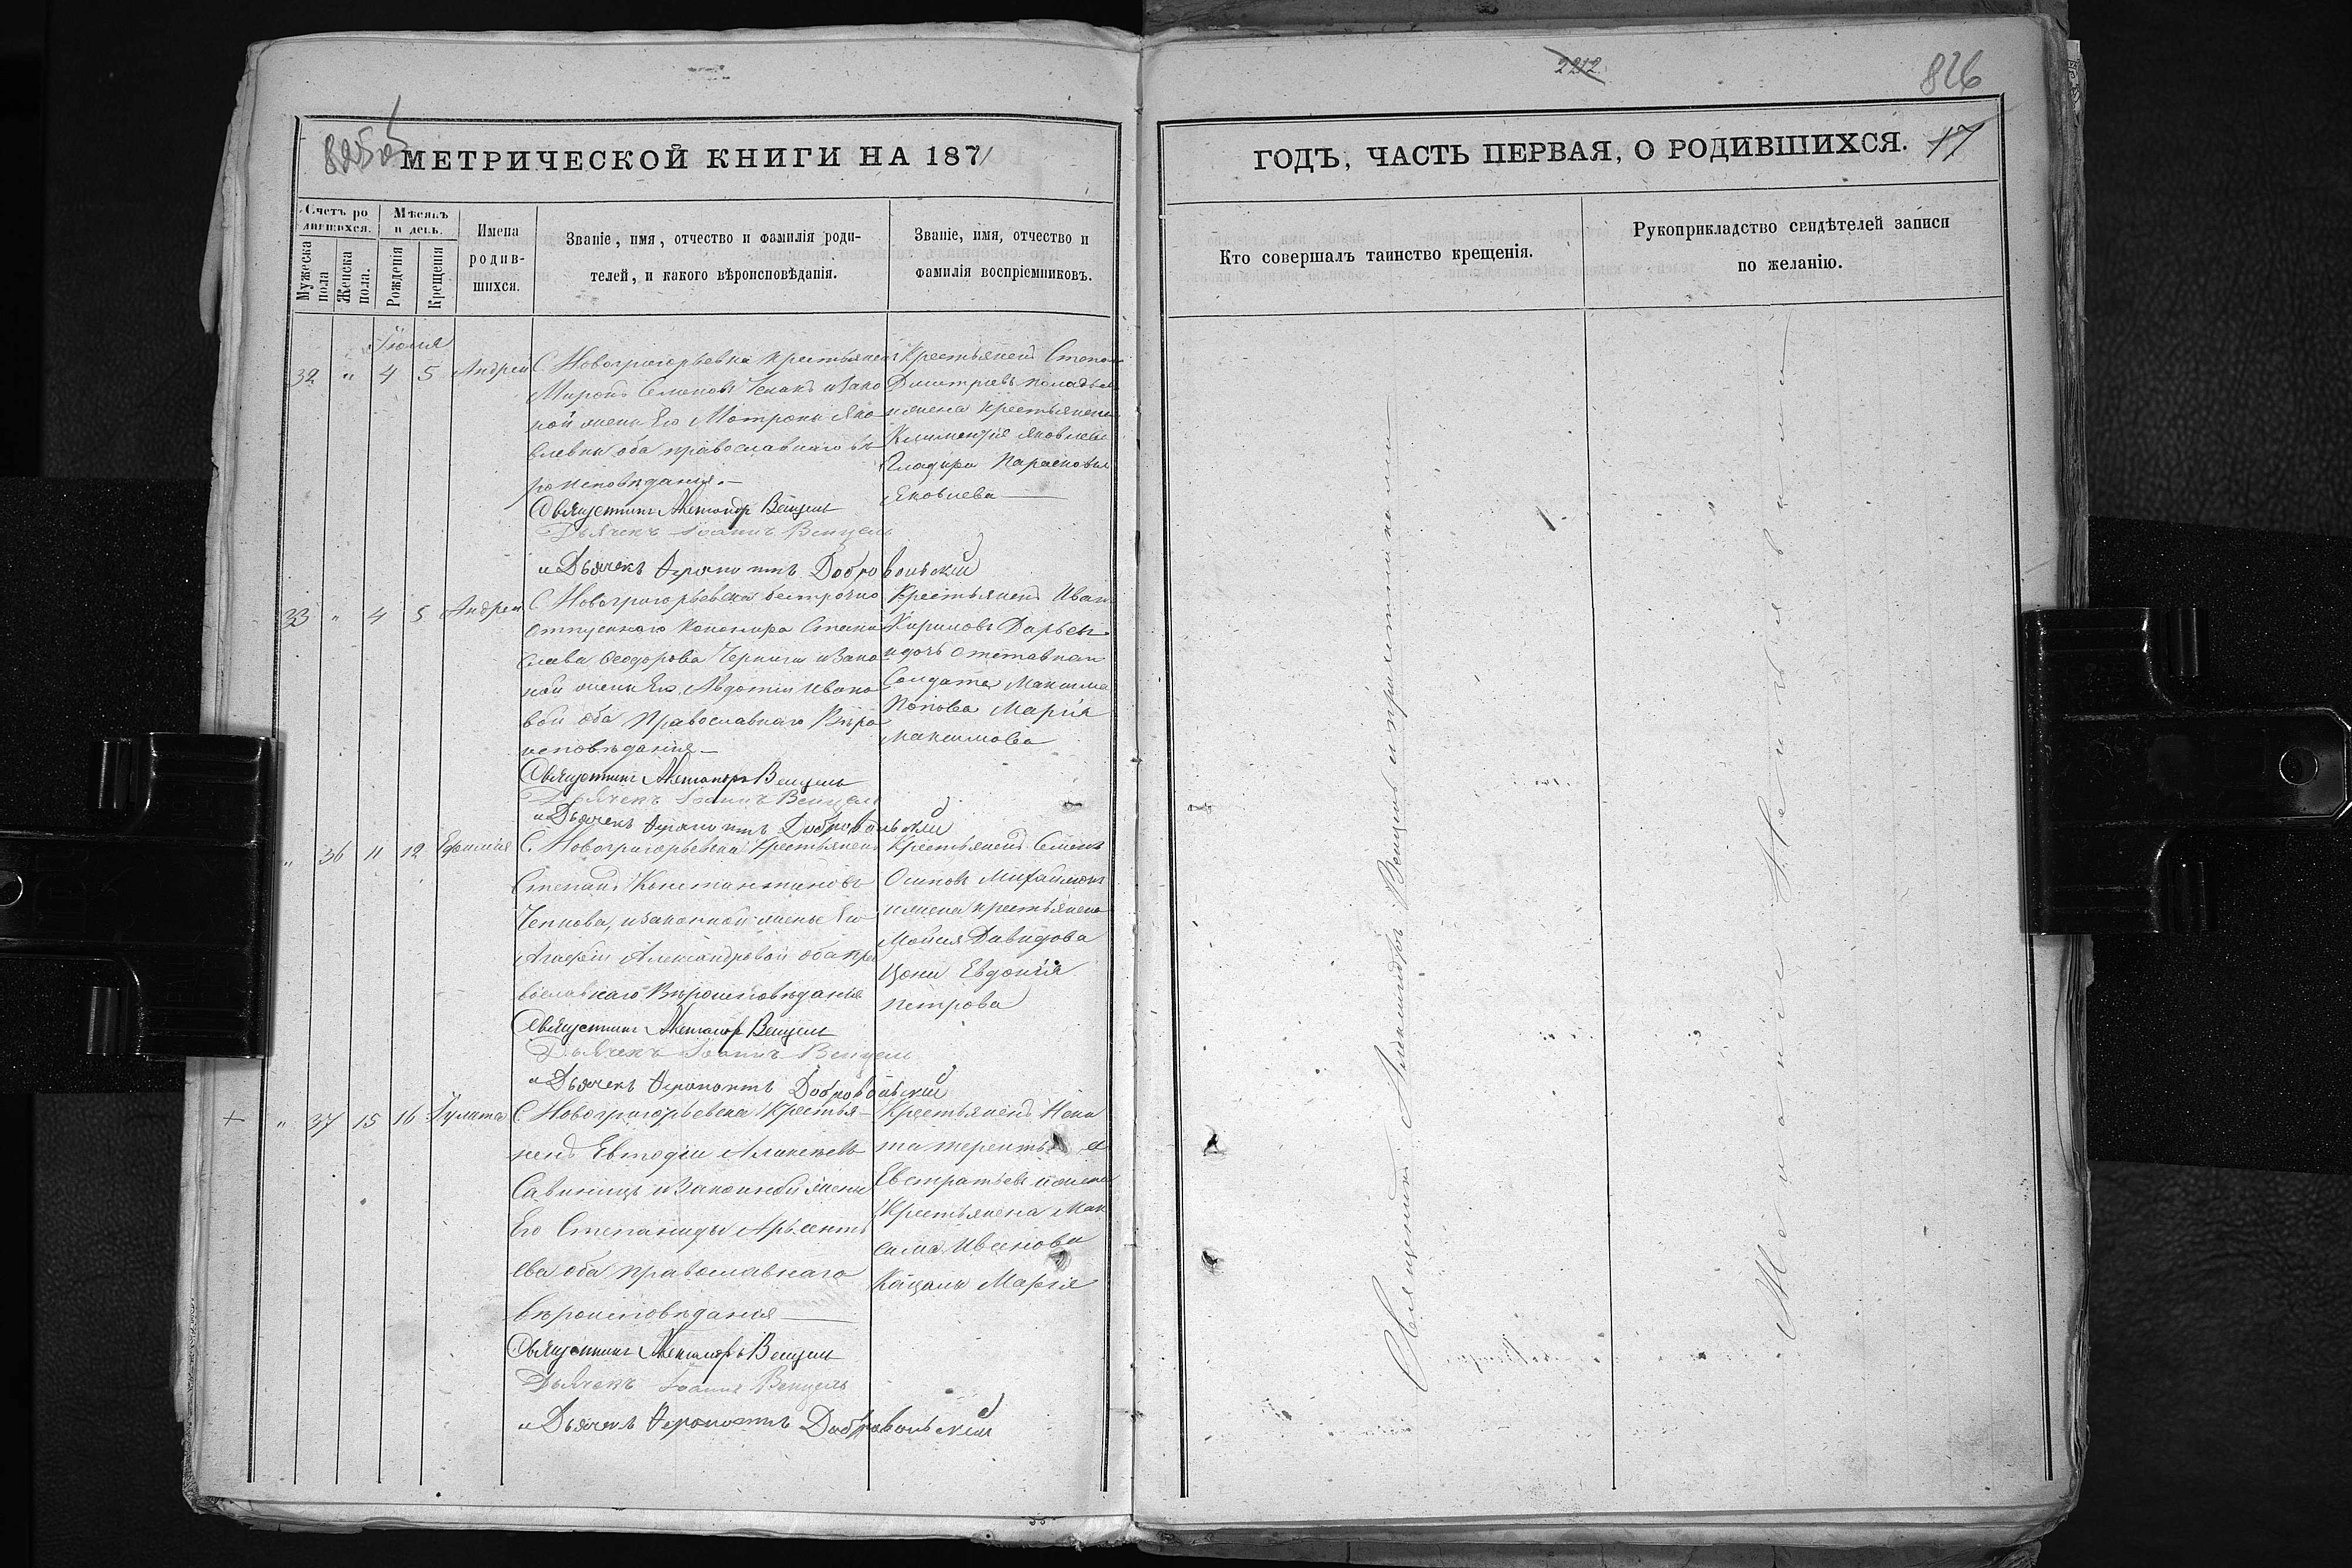 2212
826
825 об
МЕТРИЧЕСКОЙ КНИГИ НА 1871
ГОДЪ, ЧАСТЬ ПЕРВАЯ, О РОДИВШИХСЯ. 17
Счетъ ро
дившихся.
Мужеска
пола
Женска
пола.
Мѣсяцъ
и день.
Рожденія
Крещенія
Имена
родив-
шихся.
Званіе, имя, отчество и фамилія роди-
телей, и какого вѣроисповѣданія.
Званіе, имя, отчество и
фамилія воспріемниковъ.
Кто совершалъ таинство крещенія.
Рукоприкладство свидѣтелей записи
по желанію.
Іюля
32 " 4 5 Андрей
С Новогригорьевка крестьянинъ
Миронъ Семеновъ и зако
ной жены Его Мотроны Яко
влевны оба православнаго вѣ
роисповѣданія. —
Священникъ Александръ Венцель
Дьячекъ Іоаннъ Венцель
и Дьячекъ Ѳерапонтъ Добровольскій
Крестьянинъ Степанъ
Димитріевъ
и жена крестьянина
Климентія Яковлева
Парасковія
Яковлева —
33 " 4 5 Андрей
С Новогригорьевка безсрочно
отпускнаго Канонира Стани
слава Ѳеодорова и зако
ной жены Его Авдотіи Ивано
вой оба Православнаго Вѣро
исповѣданія —
Священникъ Александръ Венцель
Дьячекъ Іоаннъ Венцель
и Дьячекъ Ѳерапонтъ Добровольскій
Крестьянинъ Иванъ
Кириловъ
и дочь отставнаго
Солдата Максима
Попова Марія
Максимова
" 36 11 12 Ефимія
С. Новогригорьевка Крестьянинъ
Степанъ Константиновъ
и законной жены Его
Агафіи Александровой оба пра
вославнаго Вѣроисповѣданія
Священникъ Александръ Венцель
Дьячекъ Іоаннъ Венцель
и Дьячекъ Ѳерапонтъ Добровольскій
Крестьянинъ Семенъ
Осиповъ Михайлюкъ
и жена крестьянина
Мойсея Давидова
Евдокія
Петрова
+ " 37 15 16 Іулита
С Новогригорьевка Крестья-
нинъ Евтодіи
и Законной жены
Его Степаниды Арсенть
ева оба православнаго
вѣроисповѣданія —
Священникъ Александръ Венцель
Дьячекъ Іоаннъ Венцель
и Дьячекъ Ѳерапонтъ Добровольскій
Крестьянинъ
Евстратьевъ и жена
Крестьянина Мак
сима Иванова
Марія
Священникъ Александръ Венцель и причетниками —
Желаніе Неизъявили —